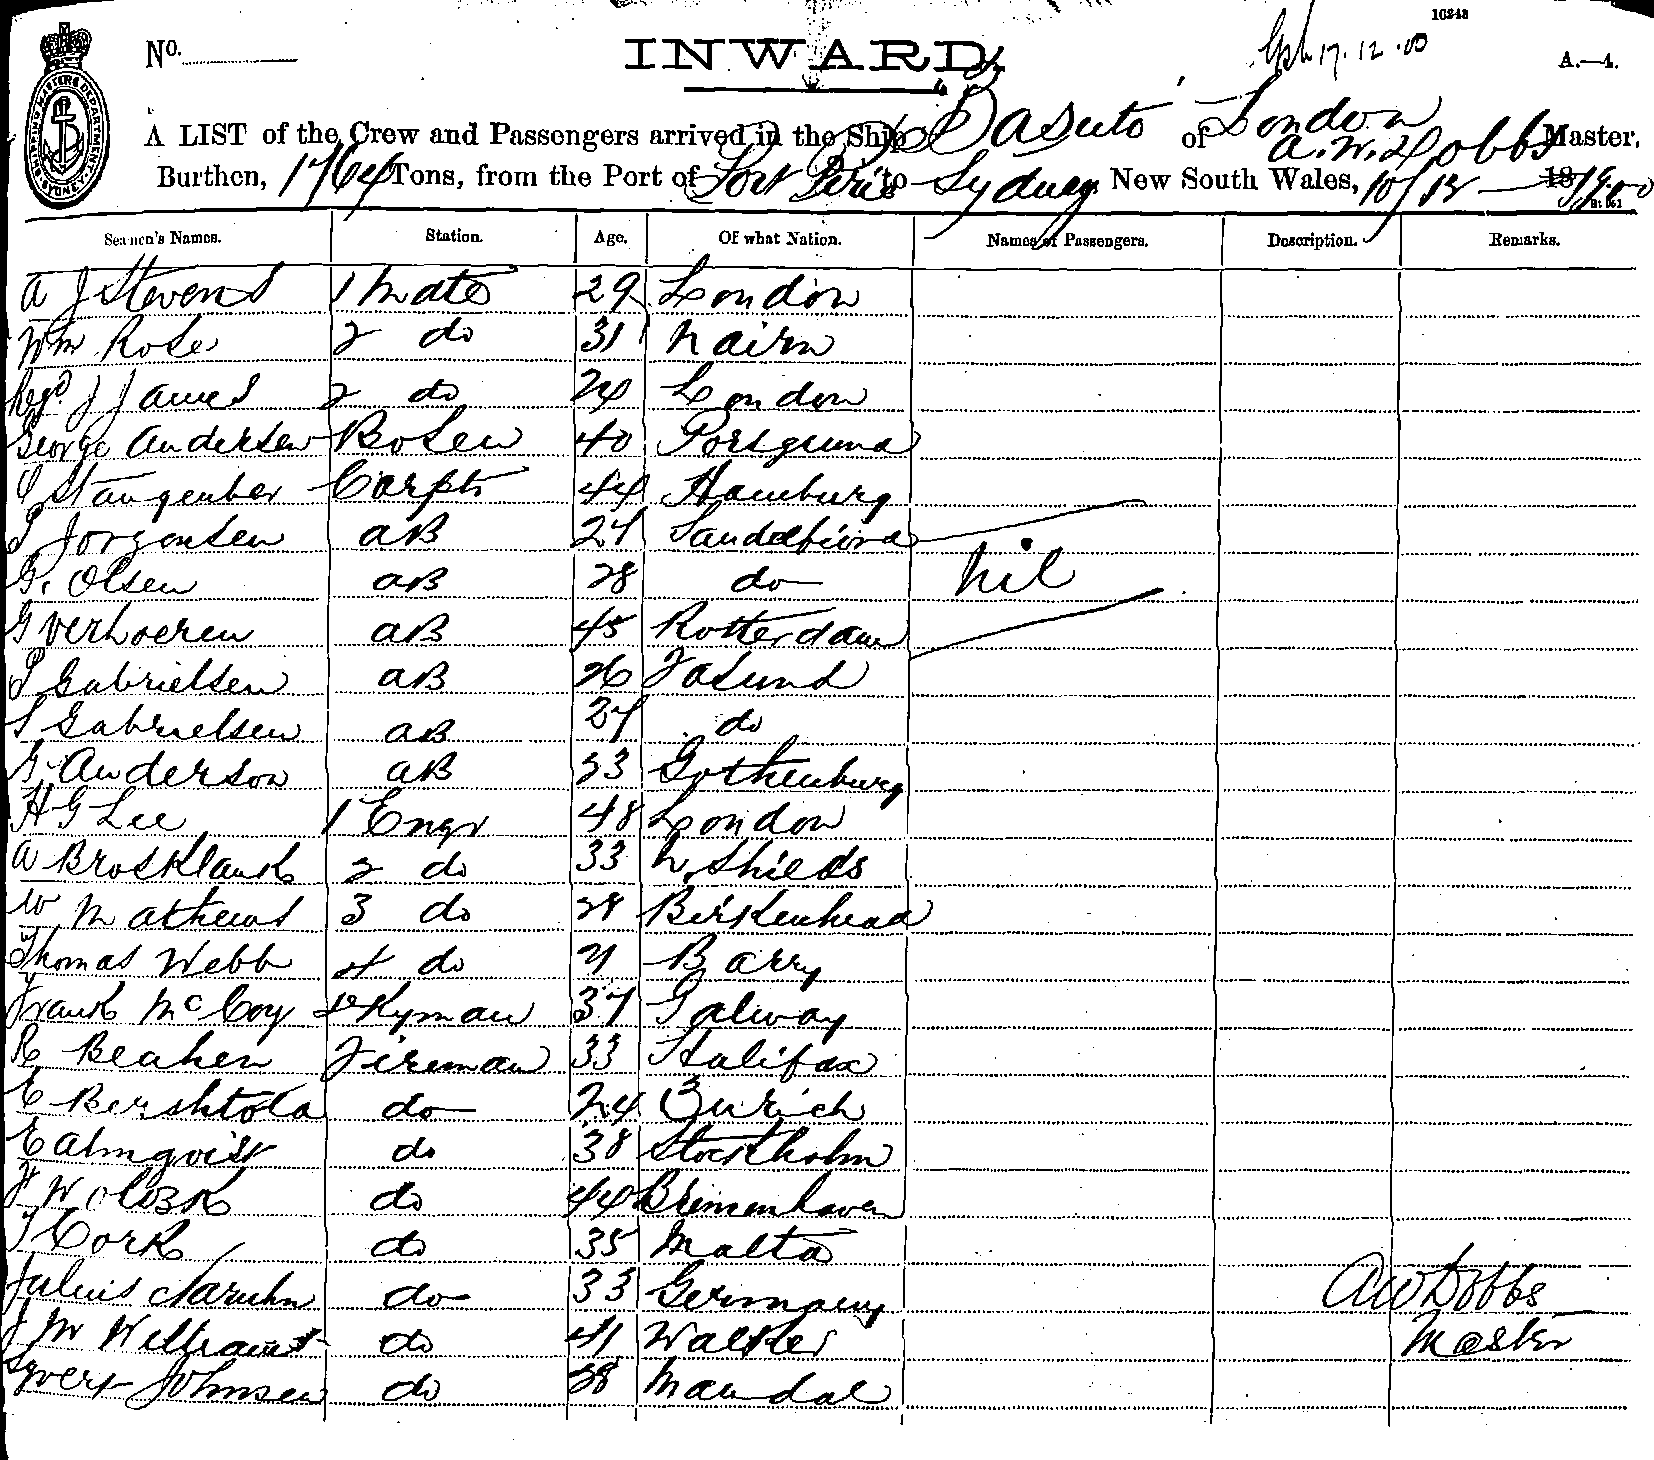 10243
No. INWARD. 17.12.00 A.—4.
A LIST of the Crew and Passengers arrived in the Ship "Basuto" of London A. W. Dobbs Master,
Burthen, 1764 Tons, from the Port of Port Pirie to Sydney New South Wales, 10/12 1900
Seamen's Names. Station. Age. Of what Nation. Names of Passengers. Description. Remarks.
A J Stevens 1 Mate 29 London
Wm Rose 2 do 31 Nairn
Regd J James 2 do 24 London
George Andersen Bosen 40 Porsgrund
Stangenber Carptr 44 Hamburg
P Jorgensen AB 27
G. Olsen AB 28 do nil
G Verhoeren AB 45 Rotterdam
P Gabrielsen AB 26
S Gabrielsen AB 27 do
G Anderson AB 23 Gothenburg
H G Lee 1 Engr 48 London
A Brocklank 2 do 33 N. Shields
W Mathews 3 do 28 Birkenhead
Thomas Webb 4 do 21 Barry
Frank McCoy Dkyman 37 Galway
R Beahen Fireman 33 Halifax
E Bershtola do 24 Zurich
E Almqvist do 38 Stockholm
do 40 Bremenhaven
T Cork do 35 Malta
Julius Naruhn do 33 Germany AW Dobbs
J M Williams do 41 Walker Master
Syvert Johnsen do 28 Mandal